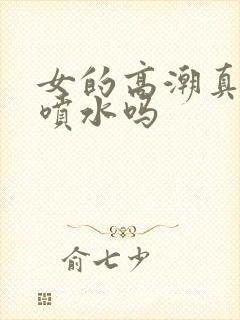 女的高潮真
喷水吗
俞七少